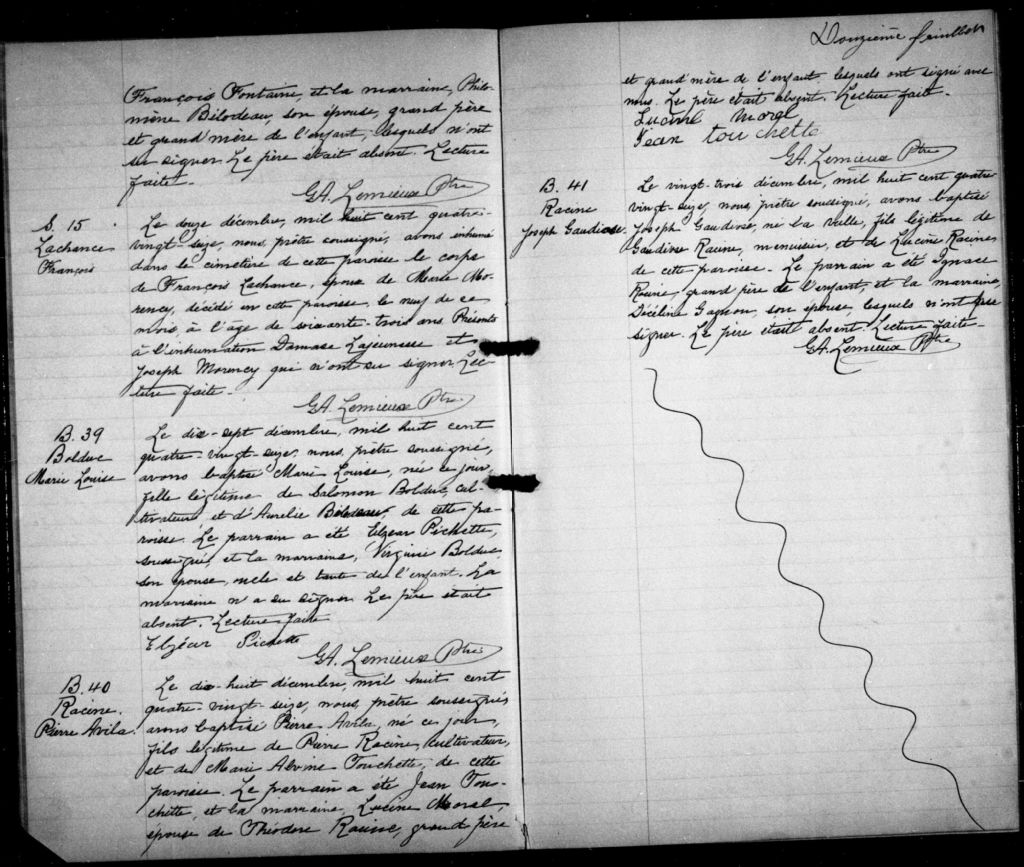 François Fontaine, et la marraine, Philo-
mène Bilodeau, son épouse, grand père
et grand'mère de l'enfant, lesquels n'ont
su signer. Le père était absent. Lecture
faite.
GA. Lemieux Ptre
S. 15
Lachance
François
Le douze décembre, mil huit cent quatre-
vingt-seize, nous, prêtre soussigné, avons inhumé
dans le cimetière de cette paroisse le corps
de François Lachance, époux de Marie Mo-
rency, décédé en cette paroisse, le neuf de ce
mois, à l'âge de soixante-trois ans. Présents
à l'inhumation Damase Lajeunesse et
Joseph Morency qui n'ont su signer. Lec-
ture faite.
GA. Lemieux Ptre
B. 39
Bolduc
Marie Louise
Le dix-sept décembre, mil huit cent
quatre-vingt-seize, nous, prêtre soussigné,
avons baptisé Marie Louise, née ce jour,
fille légitime de Salomon Bolduc, cul-
tivateur, et d'Aurelie Bilodeau, de cette pa-
roisse. Le parrain a été Elzear Pichette,
soussigné, et la marraine, Virginie Bolduc,
son épouse, oncle et tante de l'enfant. La
marraine n'a su signer. Le père était
absent. Lecture faite
Elzéar Pichette
GA. Lemieux Ptre
B. 40
Racine.
Pierre Avila.
Le dix-huit décembre, mil huit cent
quatre-vingt-seize, nous, prêtre soussigné,
avons baptisé Pierre Avila, né ce jour,
fils légitime de Pierre Racine, cultivateur,
et de Marie Alvine Touchette, de cette
paroisse. Le parrain a été Jean Tou-
chette, et la marraine, Lucine Morel,
épouse de Théodore Racine, grand père
Douzième feuillet
et grand'mère de l'enfant, lesquels ont signé avec
nous. Le père était absent. Lecture faite.
Lucine Morel
Jean touchette
GA. Lemieux Ptre
B. 41
Racine
Joseph Gaudiose.
Le vingt-trois décembre, mil huit cent quatre
vingt-seize, nous, prêtre soussigné, avons baptisé
Joseph Gaudiose, né la veille, fils légitime de
Gaudiose Racine, menuisier, et de Lucine Racine
de cette paroisse. Le parrain a été Ignace
Racine, grand père de l'enfant, et la marraine,
Gagnon, son épouse, lesquels n'ont su
signer. Le père était absent. Lecture faite.
GA. Lemieux Ptre